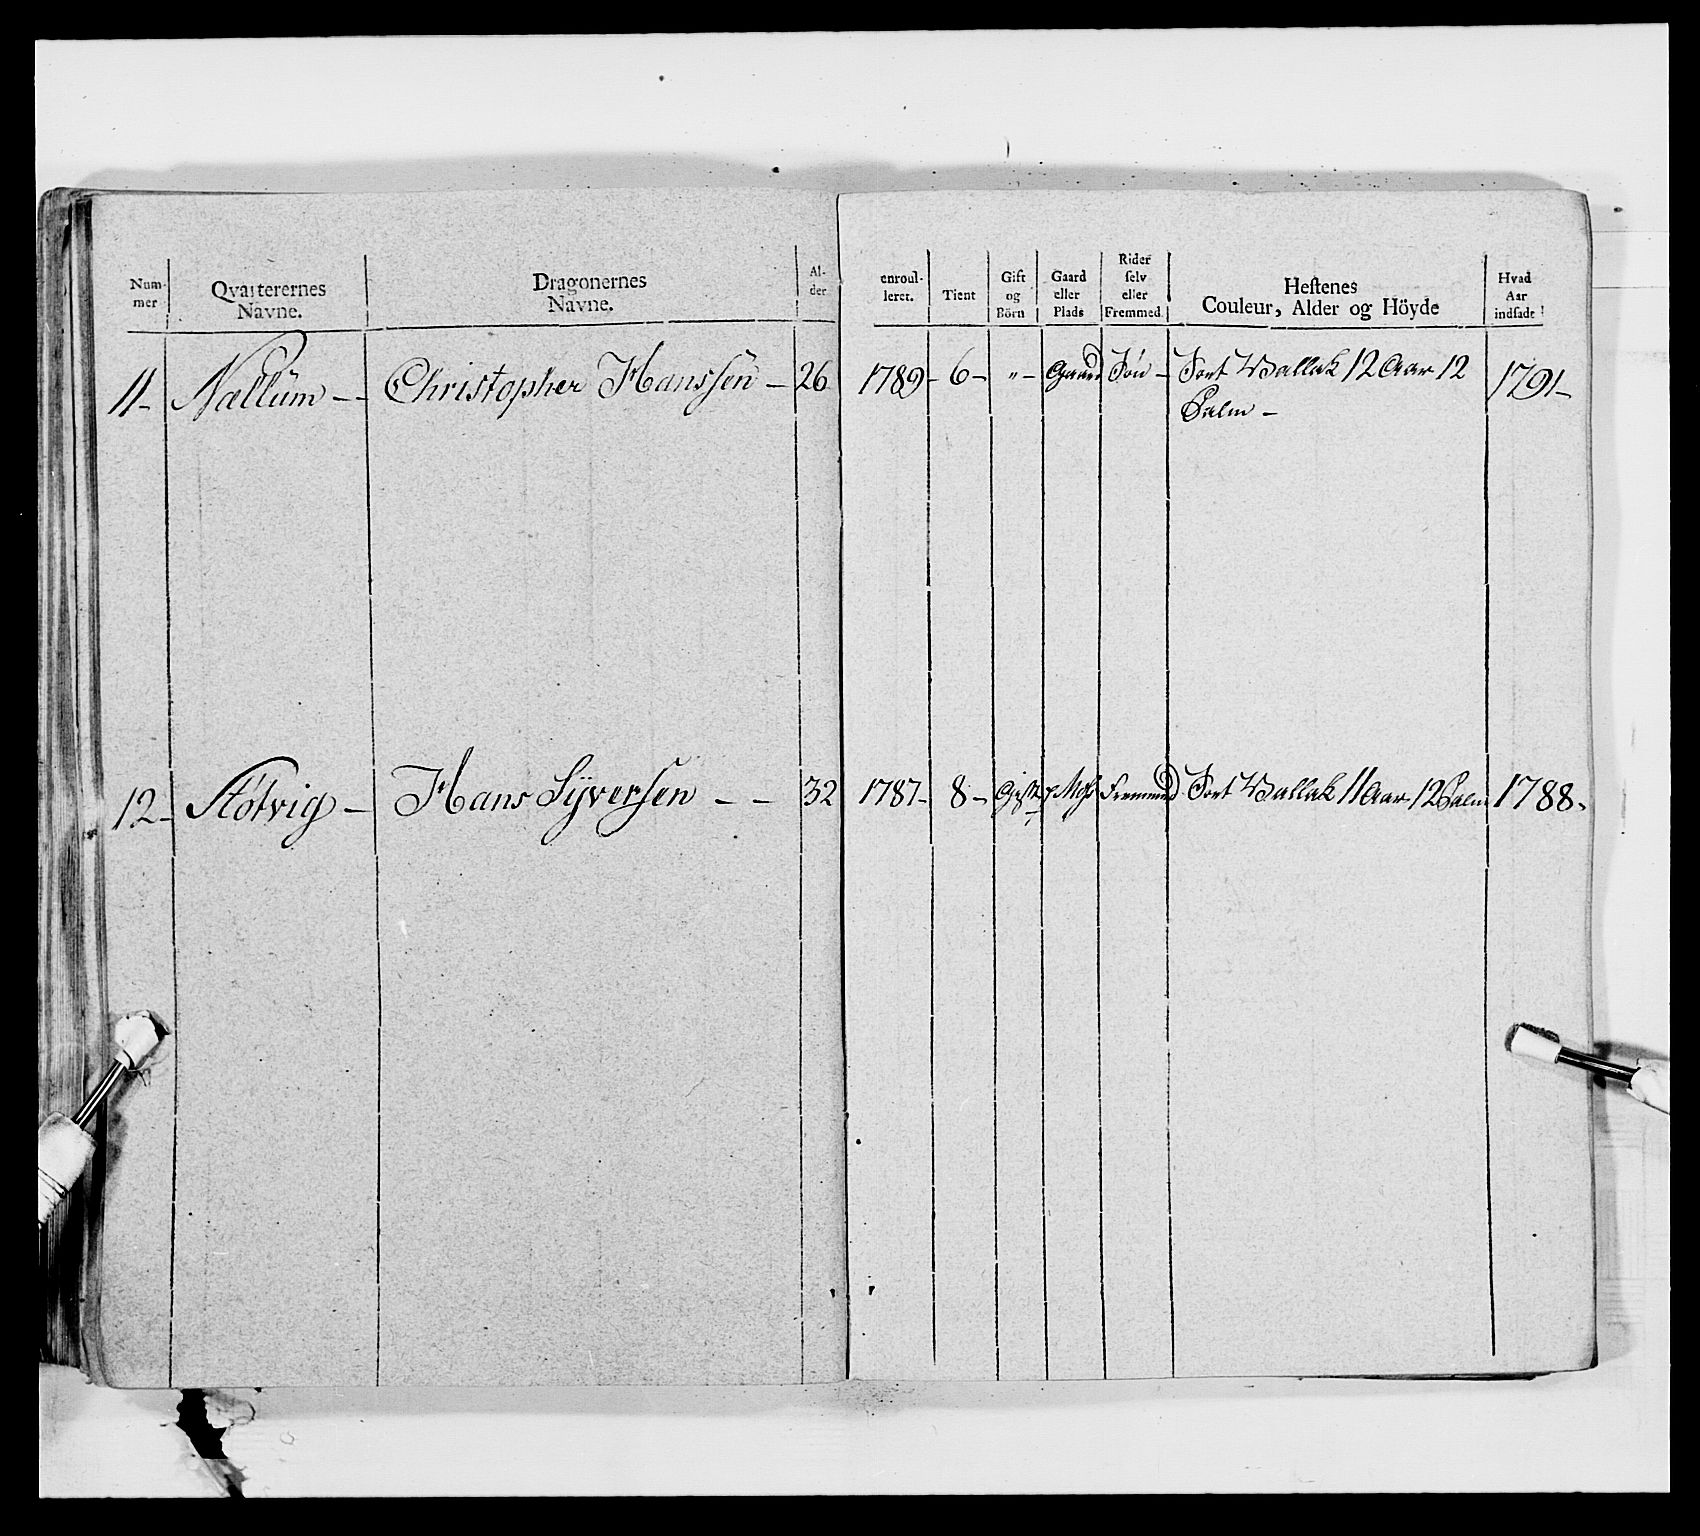 Num-
mer
Qvarterernes
Navne.
Dragonernes
Navne.
Al-
der
enroul-
leret.
Tient
Gift
og
Börn
Gaard
eller
Plads
Rider
selv
eller
Fremmed.
Hestenes
Couleur, Alder og Höyde
Hvad
Aar
indsadt
11- Nællum -- Christopher Hanssen - 26 1789- 6- "- Gaard Søn - Sort Wallak 12 Aar 12 1791-
Palm -
12- Støtvig - Hans Syversen - - 32 1787- 8- Gift Fremmed Sort Wallak 11 Aar 12 Palm 1788-